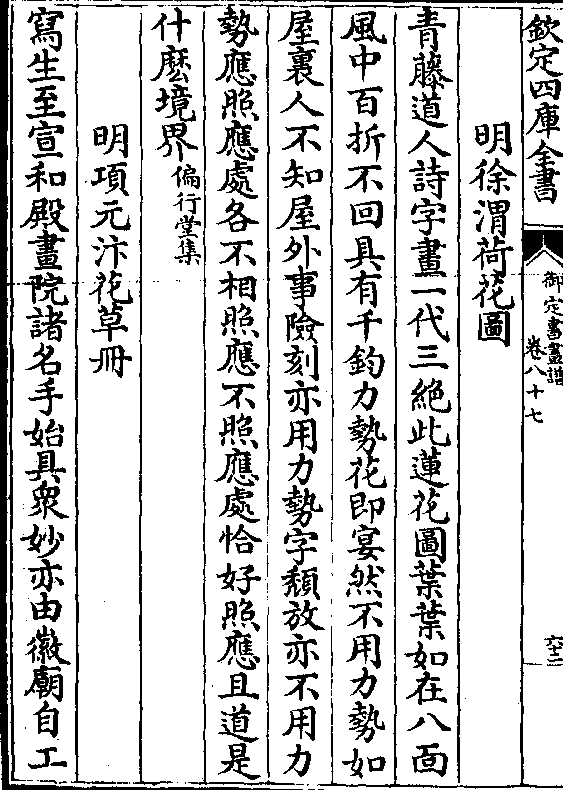 欽定四庫全書
御定書畫譜
卷八十七
六十二
明徐渭荷花圖
青藤道人詩字畫一代三絕此蓮花圖葉葉如在八面
風中百折不回具有千鈞力勢花即宴然不用力勢如
屋裏人不知屋外事險刻亦用力勢字頽放亦不用力
勢應照應處各不相照應不照應處恰好照應且道是
什麽境界偏行堂集
明項元汴花草冊
寫生至宣和殿畫院諸名手始具衆妙亦由徽廟自工